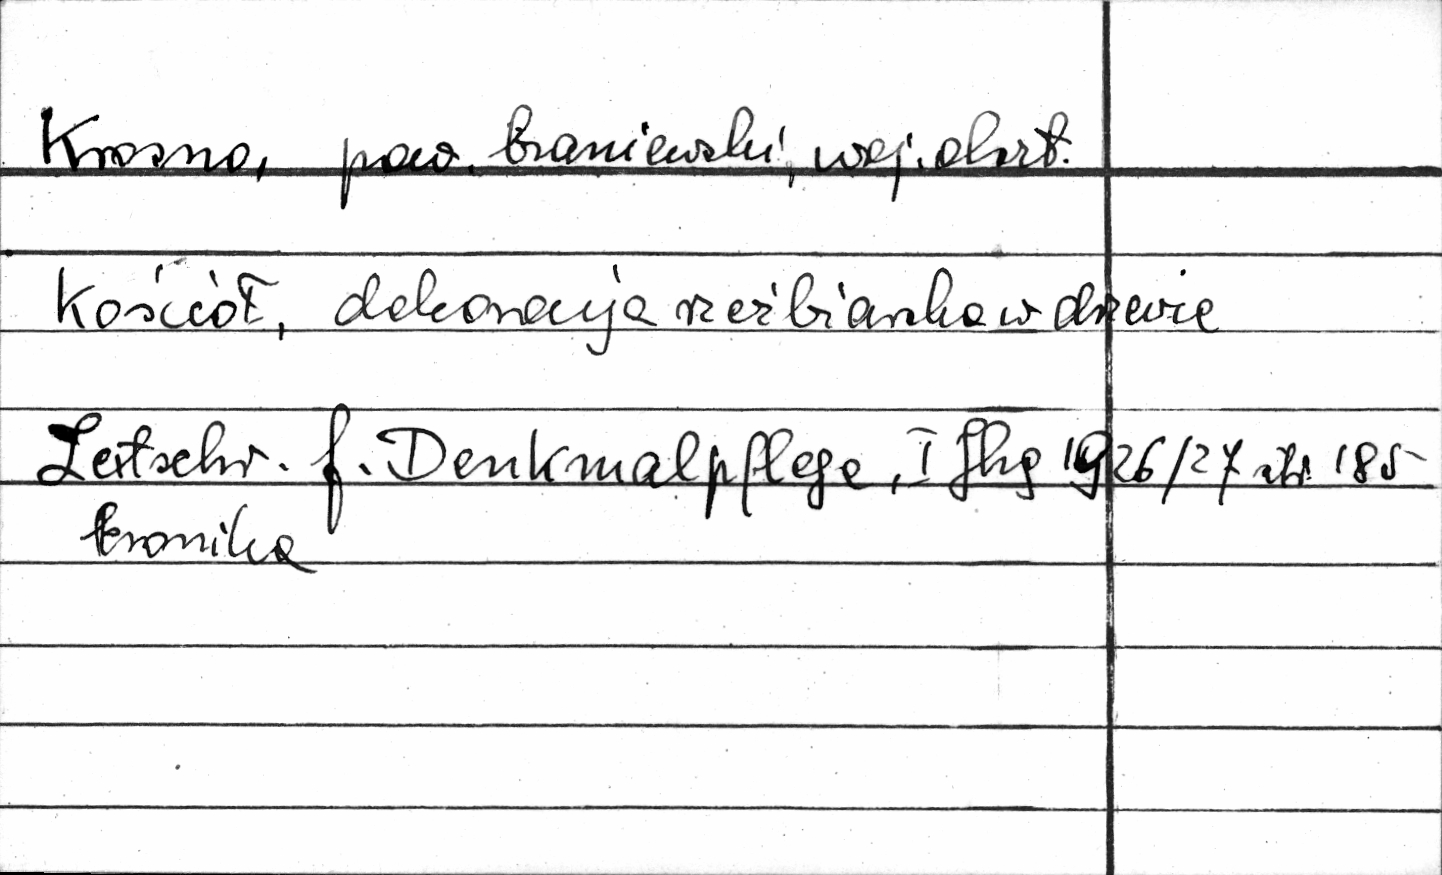 Krosno, pow. braniewski, woj. olszt.
Kościół, dekoracja rzeźbiarska w drzewie
Zeitschr. f. Denkmalpflege, I Jhg 1926/27 str. 185
kronika